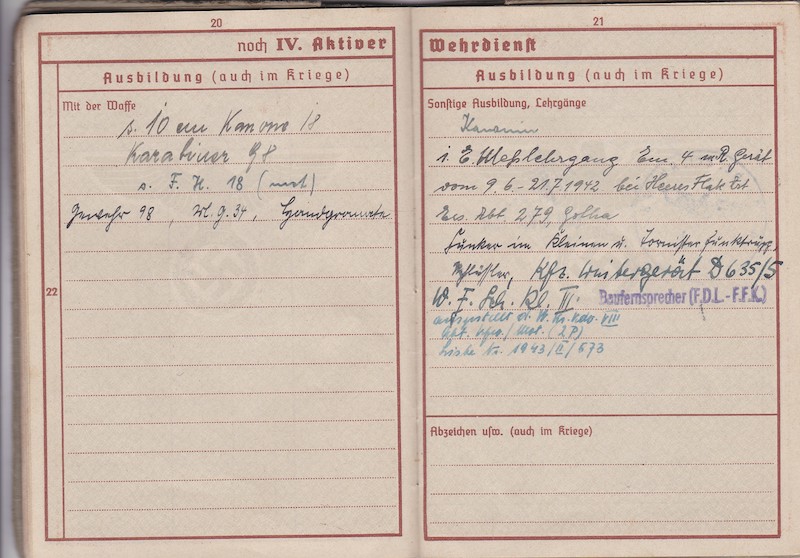 20
noch IV. Aktiver
Ausbildung (auch im Kriege)
Mit der Waffe
s. 10 cm Kanone 18
Karabiner 98
s. F. H. 18 (mot)
Gewehr 98, M.G. 34, Handgranate
22
21
Wehrdienst
Ausbildung (auch im Kriege)
Sonstige Ausbildung, Lehrgänge
Kanonier
i. E. Meßlehrgang Em. 4 m R. Gerät
vom 9.6.-21.7.1942 bei Heeres Flak Art
Ers. Abt. 279, Gotha
Funker im Kleinen u. Tornister Funktrupp,
Schlüssler, Kfz. D 635/5
W. F. Sch. Kl. III.
Baufernsprecher (F.D.L.-F.F.K.)
ausgestellt d. W. Kr. Kdo. VIII
Abt. Kfw./Mot. (2P)
Liste Nr. 1943/II/573
Abzeichen usw. (auch im Kriege)